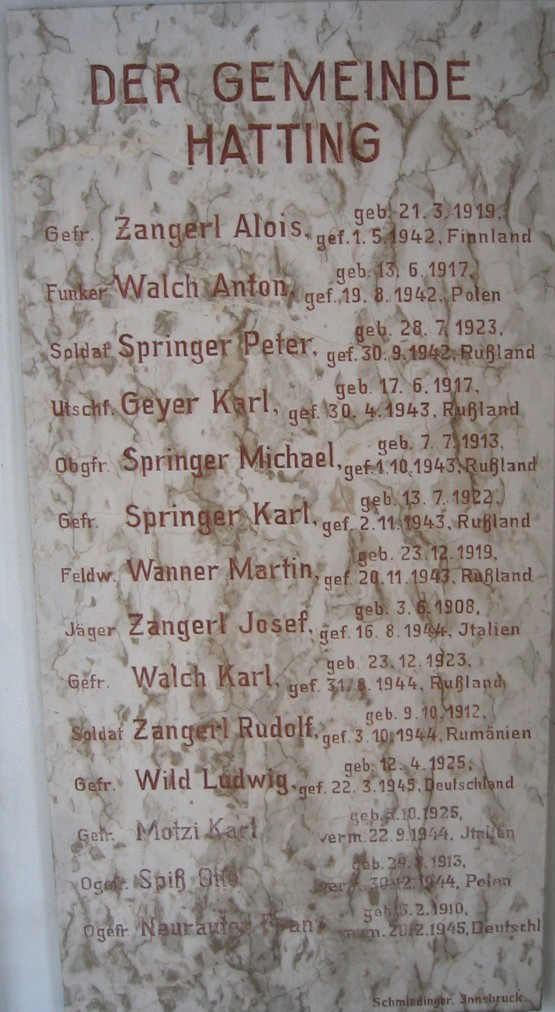 DER GEMEINDE
HATTING
geb. 21. 3. 1919,
Gefr. Zangerl Alois, gef. 1. 5. 1942, Finnland
geb. 13. 6. 1917,
Funker Walch Anton, gef. 19. 8. 1942, Polen
geb. 28. 7. 1923,
Soldat Springer Peter, gef. 30. 9. 1942, Rußland
geb. 17. 6. 1917,
Utschf. Geyer Karl, gef. 30. 4. 1943, Rußland
geb. 7. 7. 1913,
Obgfr. Springer Michael, gef. 1. 10. 1943, Rußland
geb. 13. 7. 1922,
Gefr. Springer Karl, gef. 2. 11. 1943, Rußland
geb. 23. 12. 1919,
Feldw. Wanner Martin, gef. 20. 11. 1943, Rußland
geb. 3. 6. 1908,
Jäger Zangerl Josef, gef. 16. 8. 1944, Jtalien
geb. 23. 12. 1923,
Gefr. Walch Karl, gef. 31. 8. 1944, Rußland
geb. 9. 10. 1912,
Soldat Zangerl Rudolf, gef. 3. 10. 1944, Rumänien
geb. 12. 4. 1925,
Gefr. Wild Ludwig, gef. 22. 3. 1945, Deutschland
geb. 10. 1925,
Gefr. Motzi Karl verm. 22. 9. 1944, Jtalien
geb. 1913,
Ogefr. Spiß Otto 12. 1944, Polen
geb. 2. 1910,
Ogefr. Neurauter Franz verm. 1945, Deutschl
Schmiedinger. Jnnsbruck.